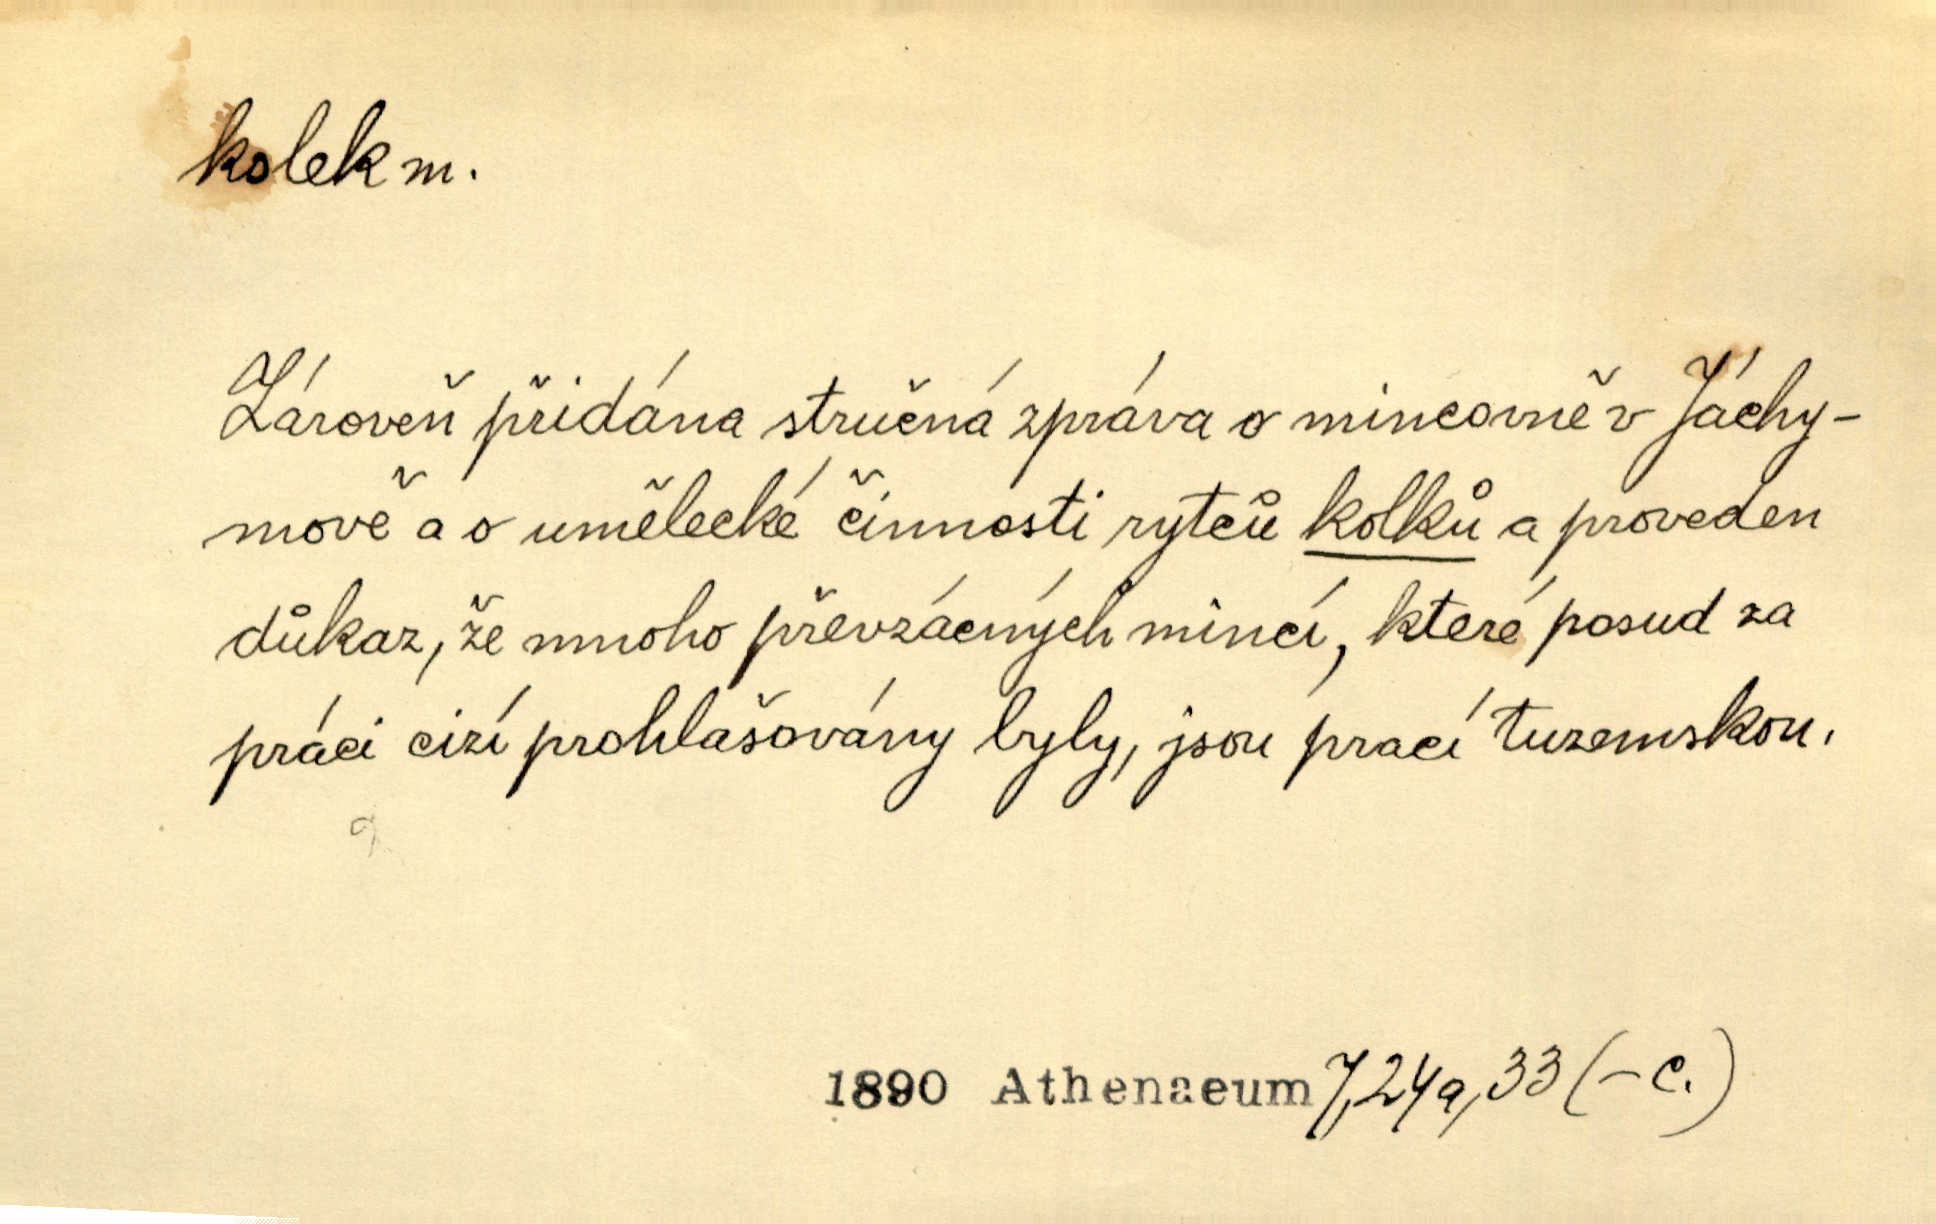 kolek m.
Zároveň přidána stručná zpráva o mincovně v Jáchy-
mově a o umělecké činnosti rytců kolků a proveden
důkaz, že mnoho převzácných mincí, které posud za
práci cizí prohlašovány byly, jsou prací tuzemskou.
1890 Athenaeum 7,24a,33 (– c.)